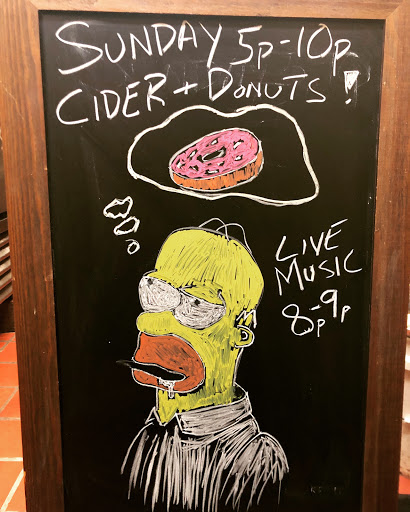 SUNDAY 5P-10P
CIDER + DONUTS !
LIVE
MUSIC
8P-9P